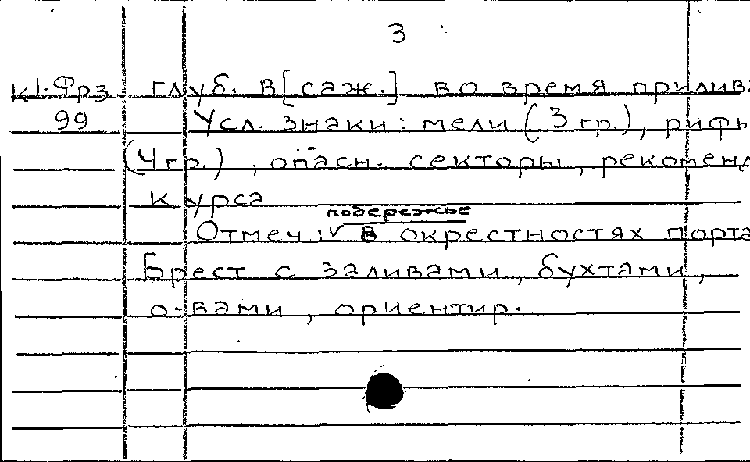 3
К1-Фрз глуб. в [саж.] во время прилива
99 Усл. знаки: мели (3 гр.), рифы
(4 гр.), опасн. секторы, рекоменд
курса
побережье
Отмеч.: √ в окрестностях порта
Брест с заливами, бухтами,
о-вами, ориентир.